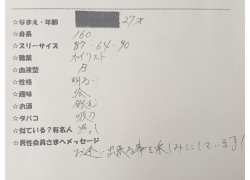 ☆なまえ・年齢 27才
☆身長 160
☆スリーサイズ 87・64・90
☆職業 ネイリスト
☆血液型
☆性格 明るい
☆趣味
☆お酒 飲む
☆タバコ 吸う
☆似ている?有名人
☆男性会員さまへメッセージ
お逢い出来る事を楽しみにしています!